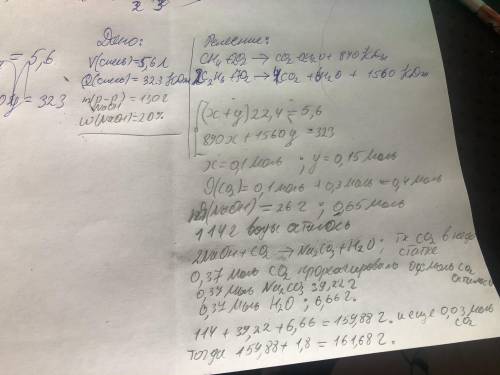 2 3
= 5,6
y = 323
Дано:
V(смесь)=5,6 л
Q(смесь)= 323 кДж
m(р-р NaOH)=130 г
w(NaOH)=20%
Решение:
CH4+2O2 → CO2+2H2O+ 890 кДж
C2H6+O2 → CO2 + H2O + 1560 кДж
(x+y)22,4 = 5,6
890x+1560y = 323
x=0,1 моль ; y = 0,15 моль
(CO2)= 0,1 моль + 0,3 моль = 0,4 моль
(NaOH) = 26 г ; 0,65 моль
114 г воды осталось
2NaOH+CO2 → Na2CO3+H2O ; тк CO2 в
статке
0,37 моль CO2 прореагировало 0,03 моль CO2
осталось
0,37 моль Na2CO3 39,22 г
0,37 моль H2O ; 6,66 г.
114 + 39,22 + 6,66 = 159,88 г. и еще 0,03 моль
CO2
Тогда 159,88 + 1,8 = 161,68 г.